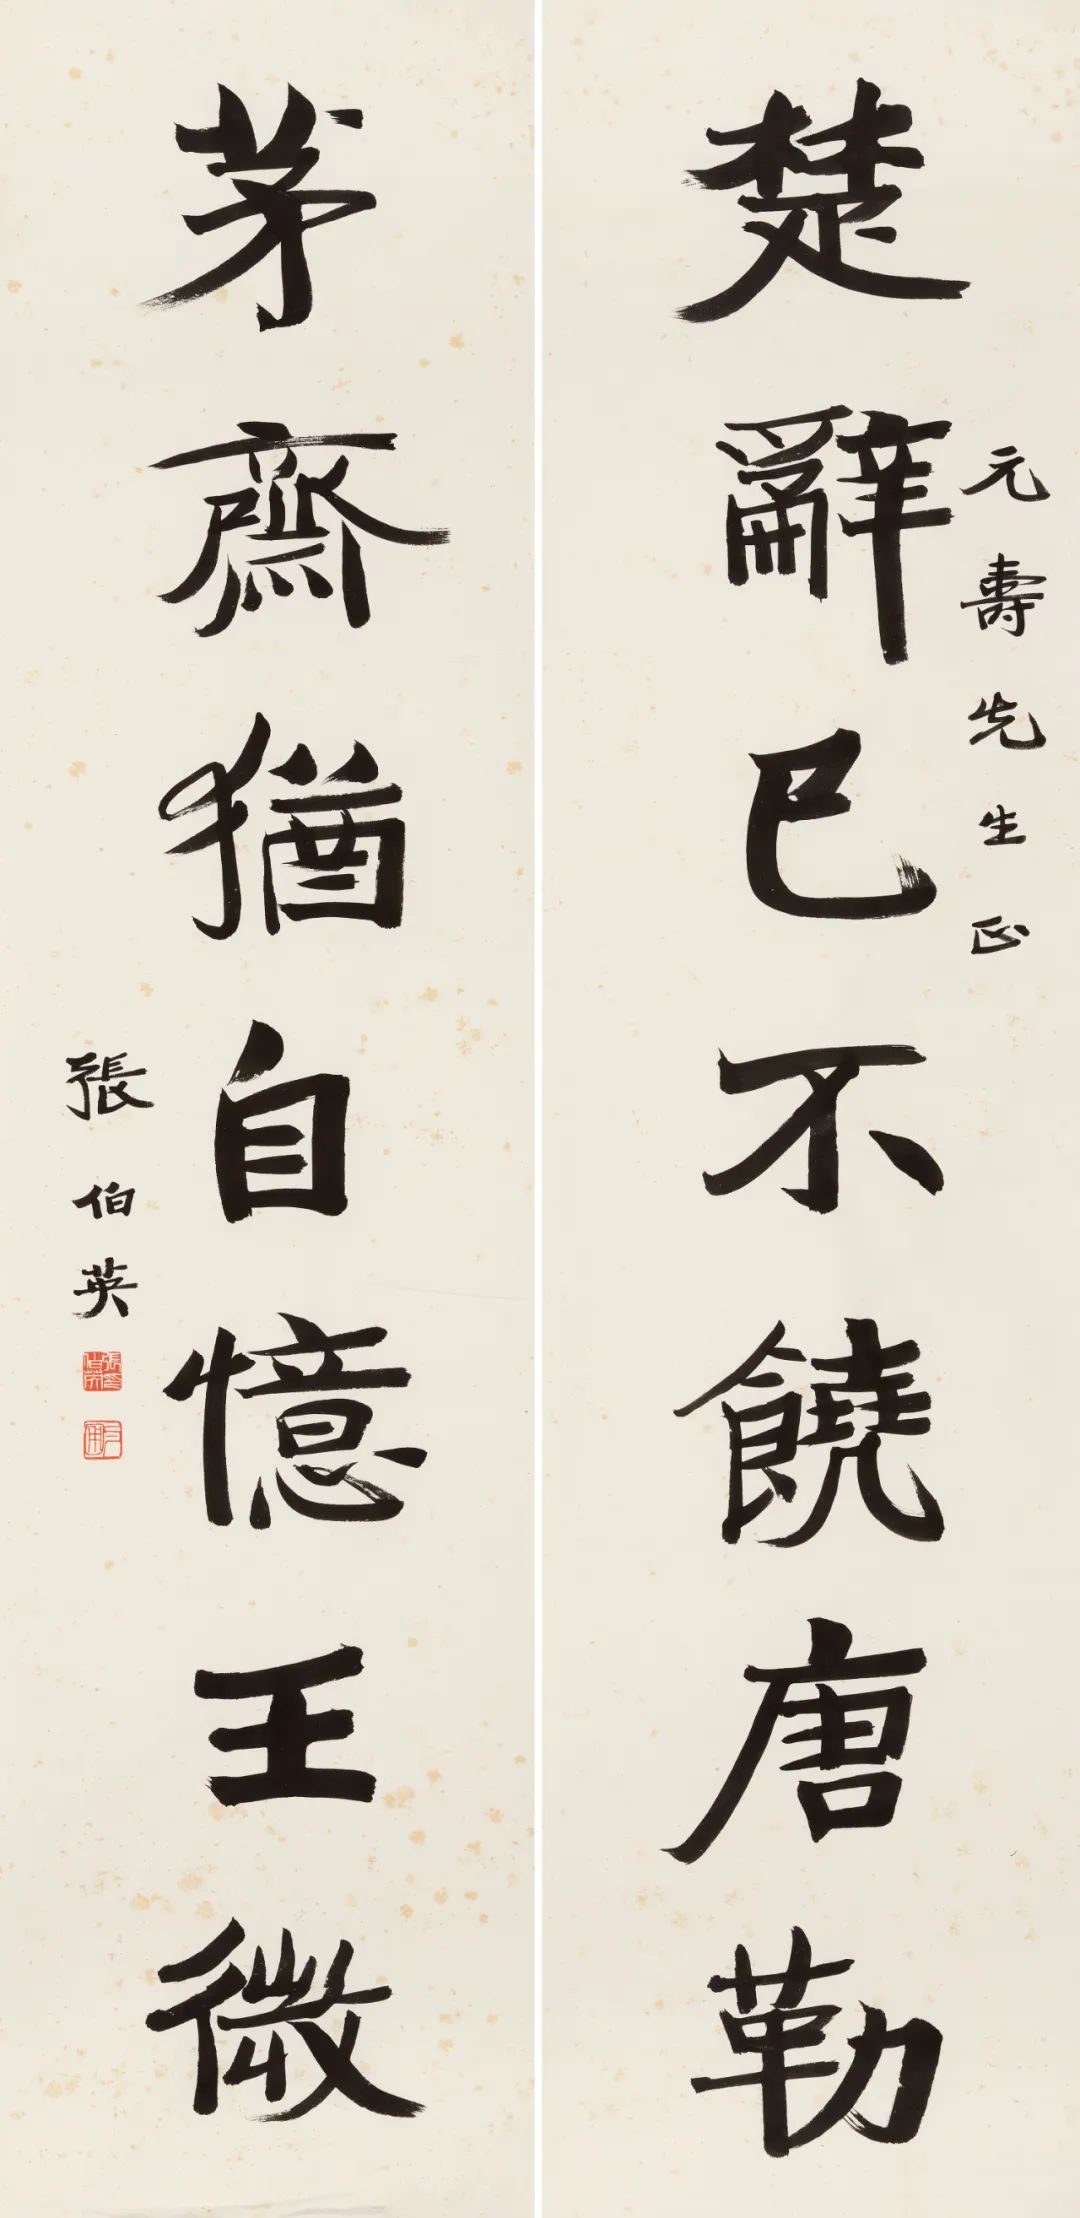 元壽先生正
楚辭已不饒唐勒
茅齋猶自憶王微
張伯英
張伯英印